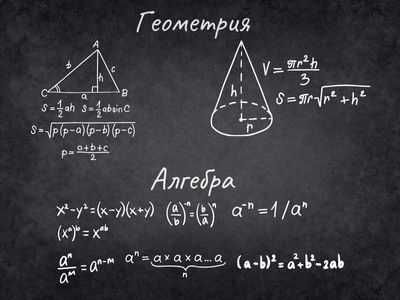 Геометрия
A
b h c
C a B
S=½ah S=½absinC
S=√p(p-a)(p-b)(p-c)
p=(a+b+c)/2
h
r
V=πr²h/3
S=πr√r²+h²
Алгебра
x²-y²=(x-y)(x+y) (a/b)⁻ⁿ=(b/a)ⁿ a⁻ⁿ=1/aⁿ
(xᵃ)ᵇ=xᵃᵇ
aⁿ/aᵐ=aⁿ⁻ᵐ aⁿ=a×a×a...a (a-b)²=a²+b²-2ab
n